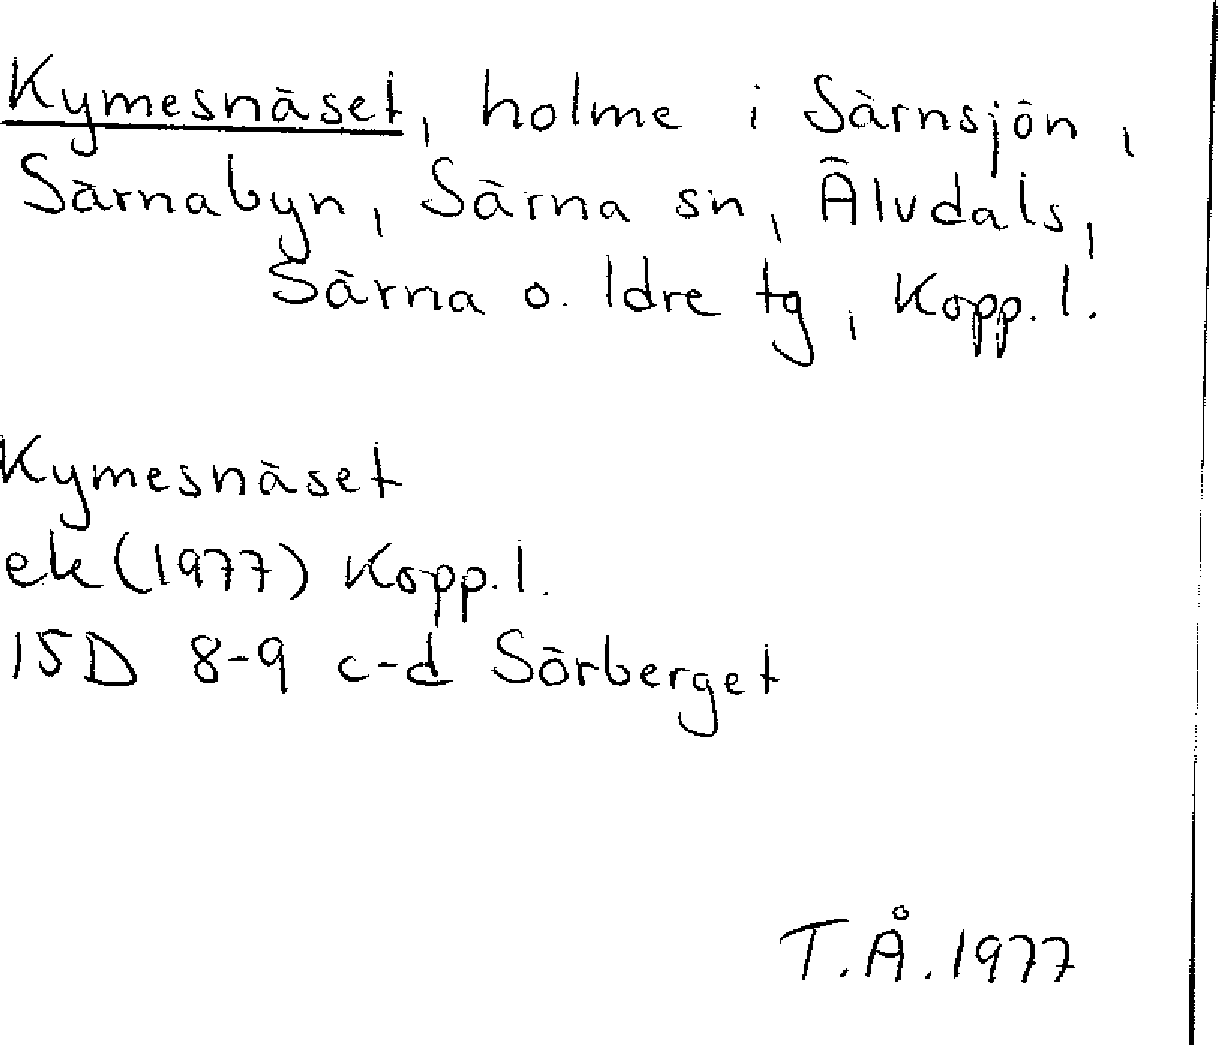 Kymesnäset, holme i Särnsjön,
Särnabyn, Särna sn, Älvdals,
Särna o. Idre tg, Kopp. l.
Kymesnäset
ek (1977) Kopp. l.
15D 8-9 c-d Sörberget
T.Å. 1977